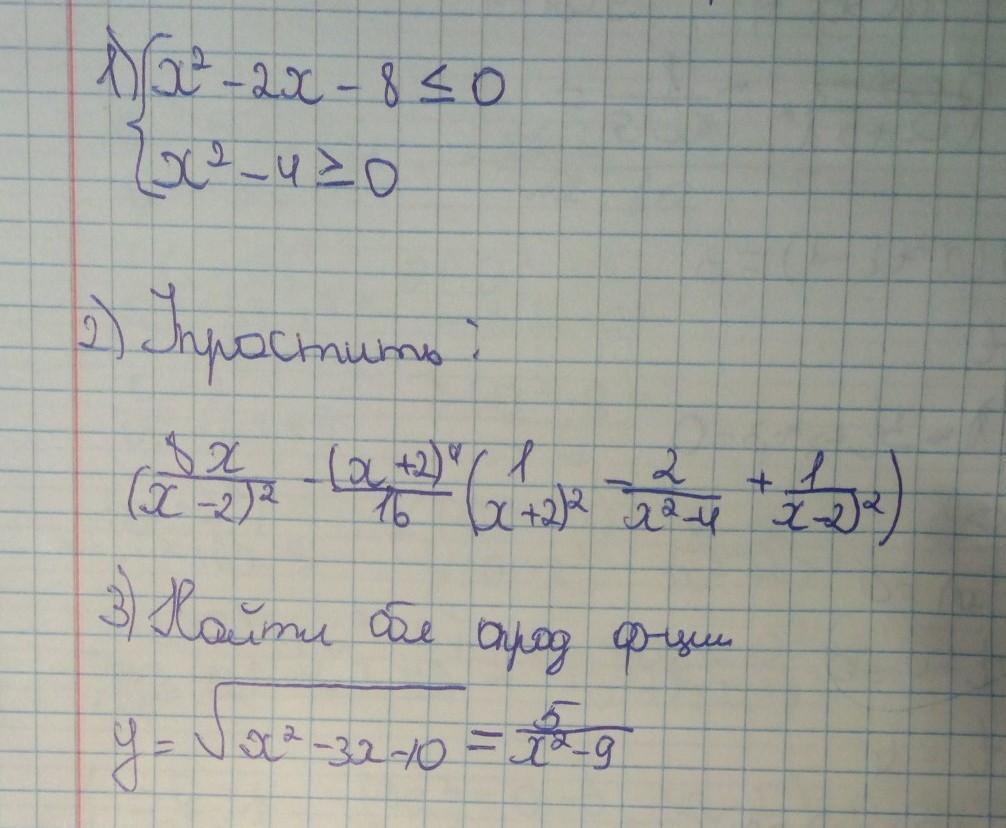 1) { x² - 2x - 8 ≤ 0
x² - 4 ≥ 0
2) Упростить:
(8x/(x-2)² - (x+2)⁴/16 (1/(x+2)² - 2/(x²-4) + 1/(x-2)²)
3) Найти обл опред ф-ции
y = √(x² - 3x - 10) = 5/(x² - 9)